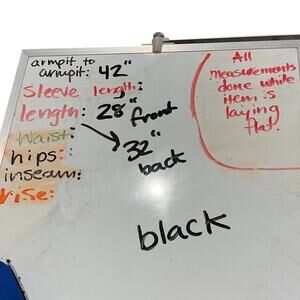 armpit to
armpit: 42"
Sleeve length:
length: 28" front
waist:
32" back
hips:
inseam:
rise:
All
measurements
done while
item is
laying
flat.
black